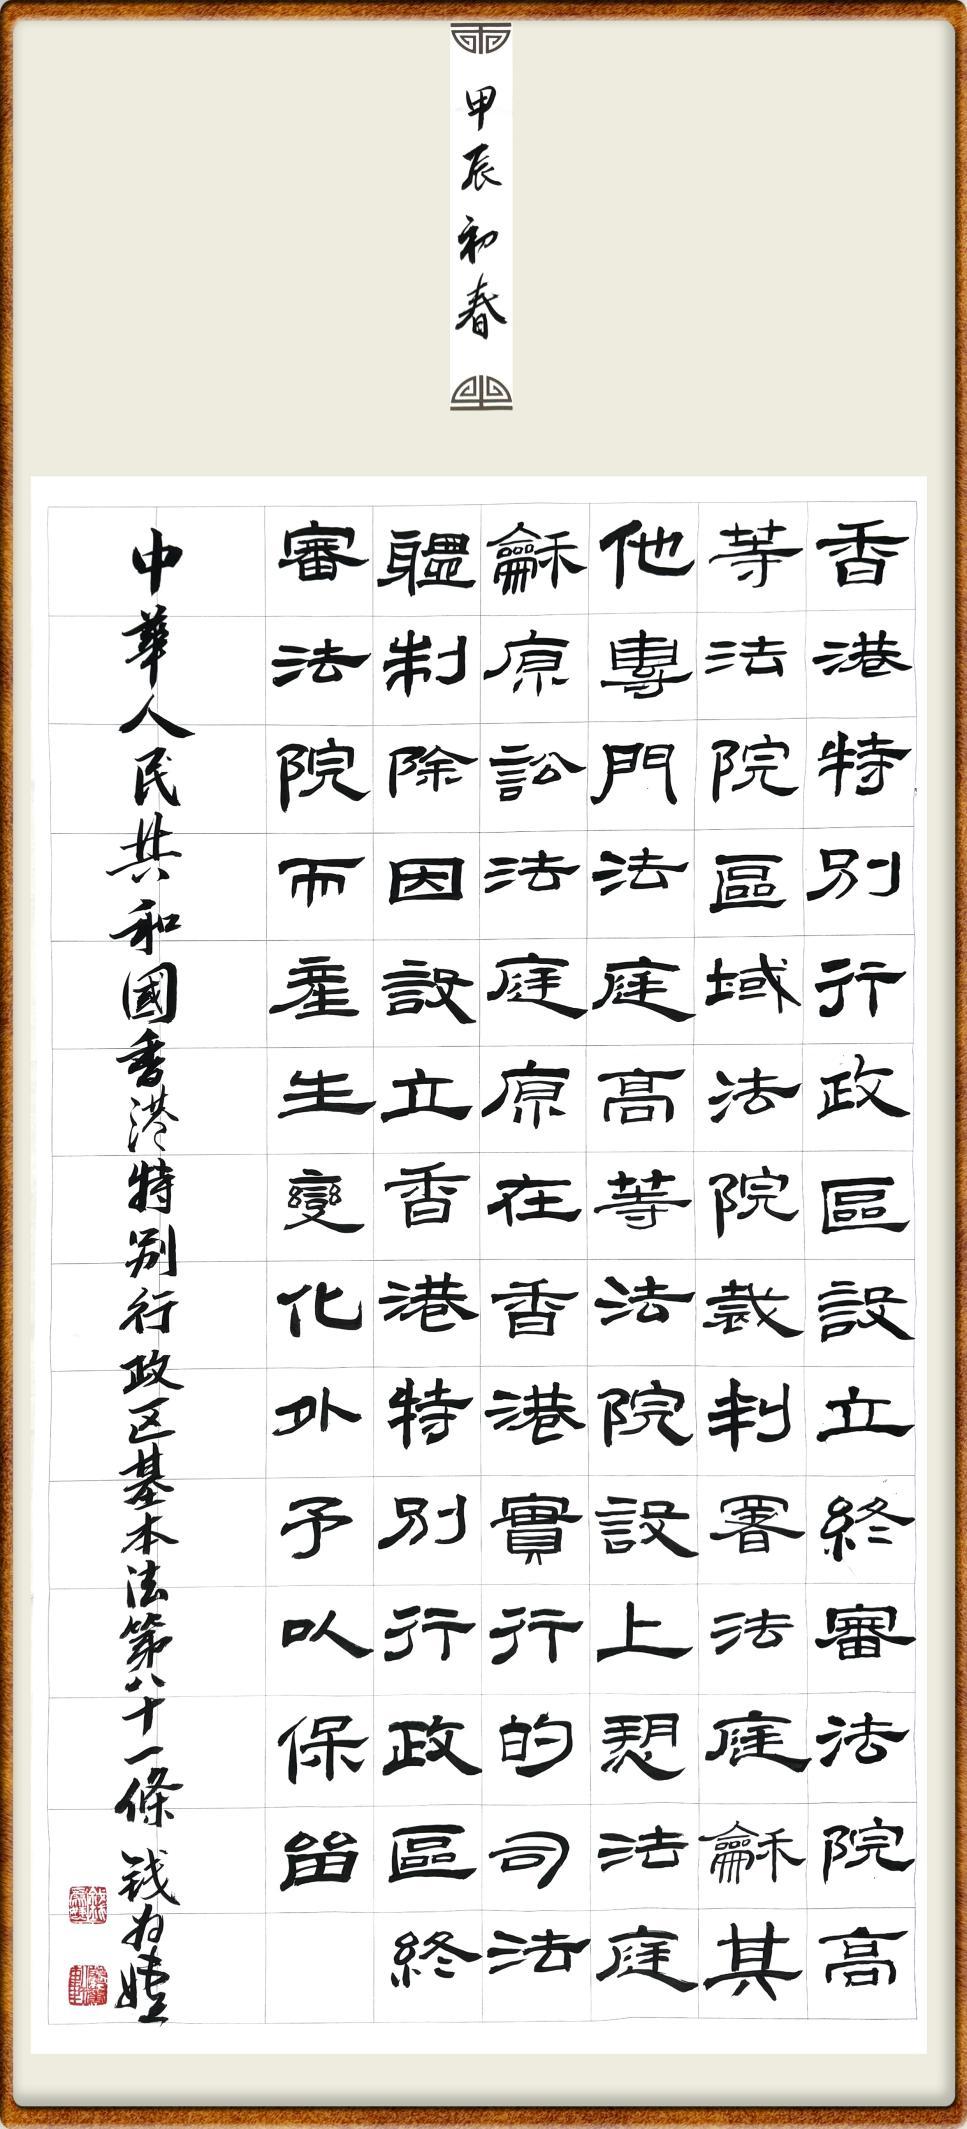 甲辰初春
香港特別行政區設立終審法院高
等法院區域法院裁判署法庭龢其
他專門法庭高等法院設上愬法庭
龢原訟法庭原在香港實行的司法
軆制除因設立香港特別行政區終
審法院而產生變化外予以保留
中華人民共和國香港特別行政区基本法第八十一條 钱